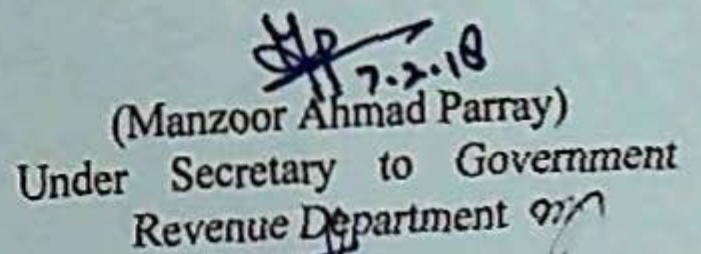 7.2.18
(Manzoor Ahmad Parray)
Under Secretary to Government
Revenue Department